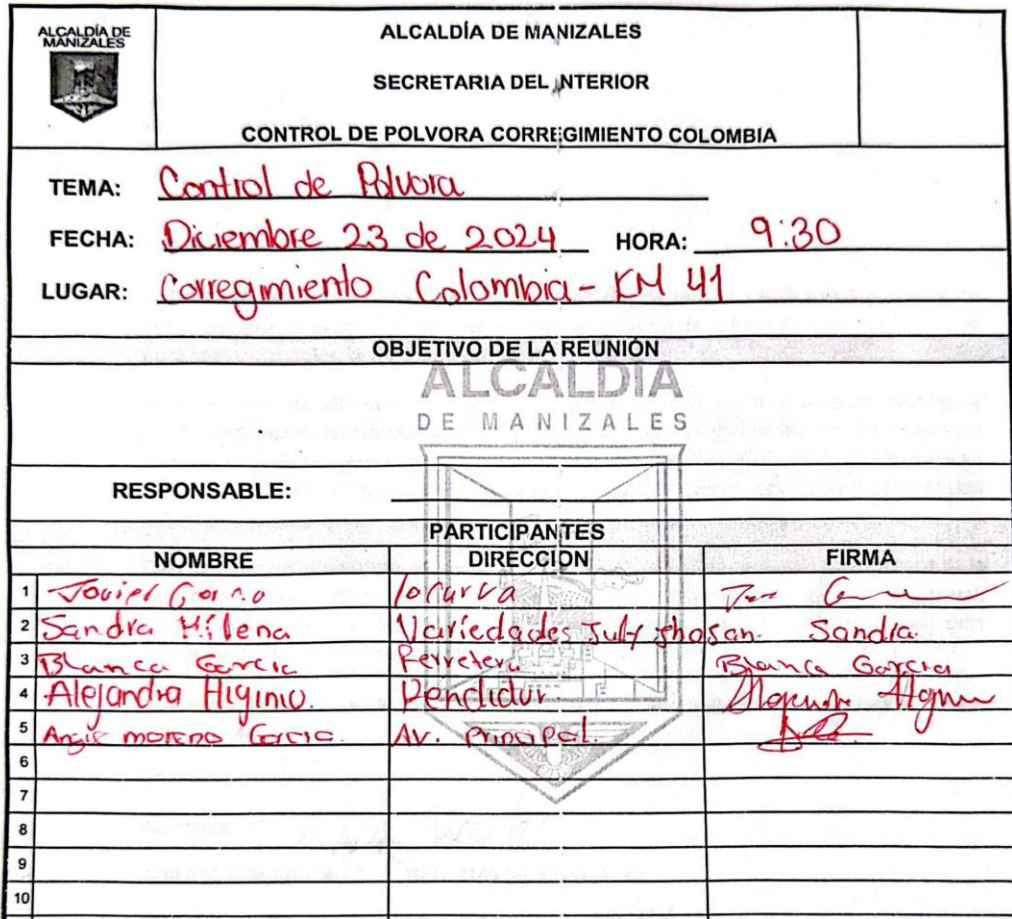 ALCALDÍA DE
MANIZALES
ALCALDÍA DE MANIZALES
SECRETARIA DEL INTERIOR
CONTROL DE POLVORA CORREGIMIENTO COLOMBIA
TEMA: Control de Polvora
FECHA: Diciembre 23 de 2024 HORA: 9:30
LUGAR: Corregimiento Colombia - KM 41
OBJETIVO DE LA REUNIÓN
ALCALDÍA
DE MANIZALES
RESPONSABLE:
PARTICIPANTES
NOMBRE DIRECCION FIRMA
1 Javier la Curva
2 Sandra Milena Variedades Sandra
3 Blanca Garcia Ferretera Blanca Garcia
4 Alejandra Higinio.
5 Angie moreno Garcia. Av. principal
6
7
8
9
10